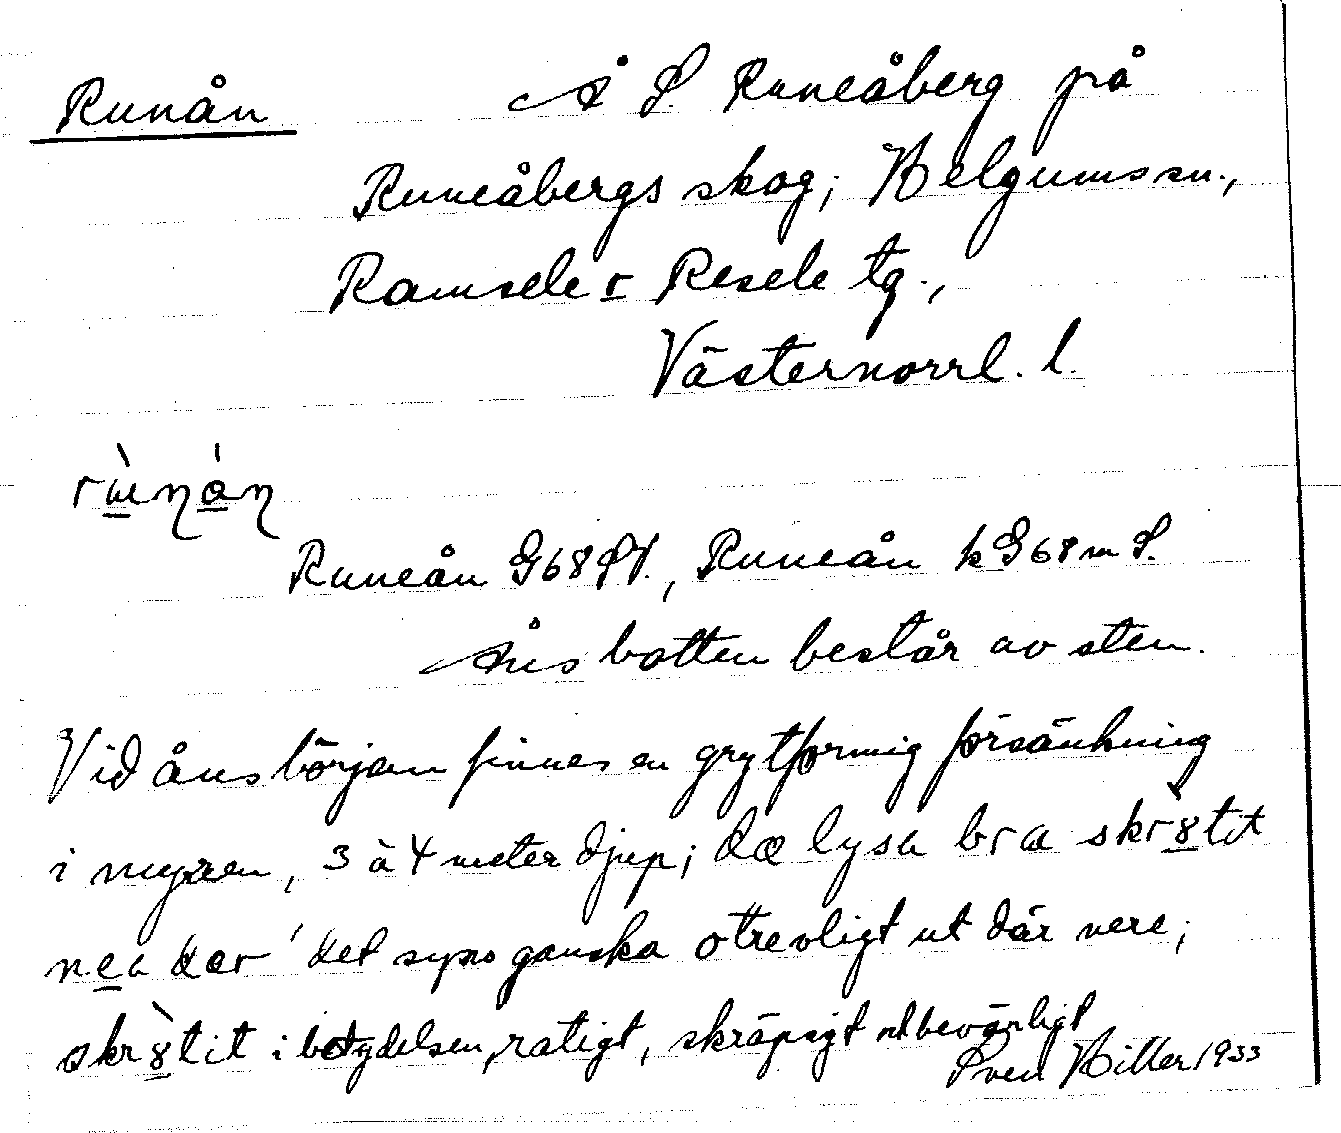 Runån
Å S. Runeåberg på
Runeåbergs skog; Helgums sn.,
Ramsele o Resele tg.,
Västernorrl. l.
rùnán
Runeån G68SV., Runeån k G68m S.
Åns botten består av sten.
Vid åns början finnes en grytformig försänkning
i myren, 3 à 4 meter djup; dæ lysa bra skrøtit
nea dær ' det syns ganska otrevligt ut där nere;
skrøtit i betydelsen, ratigt, skräpigt
Sven Hiller 1933